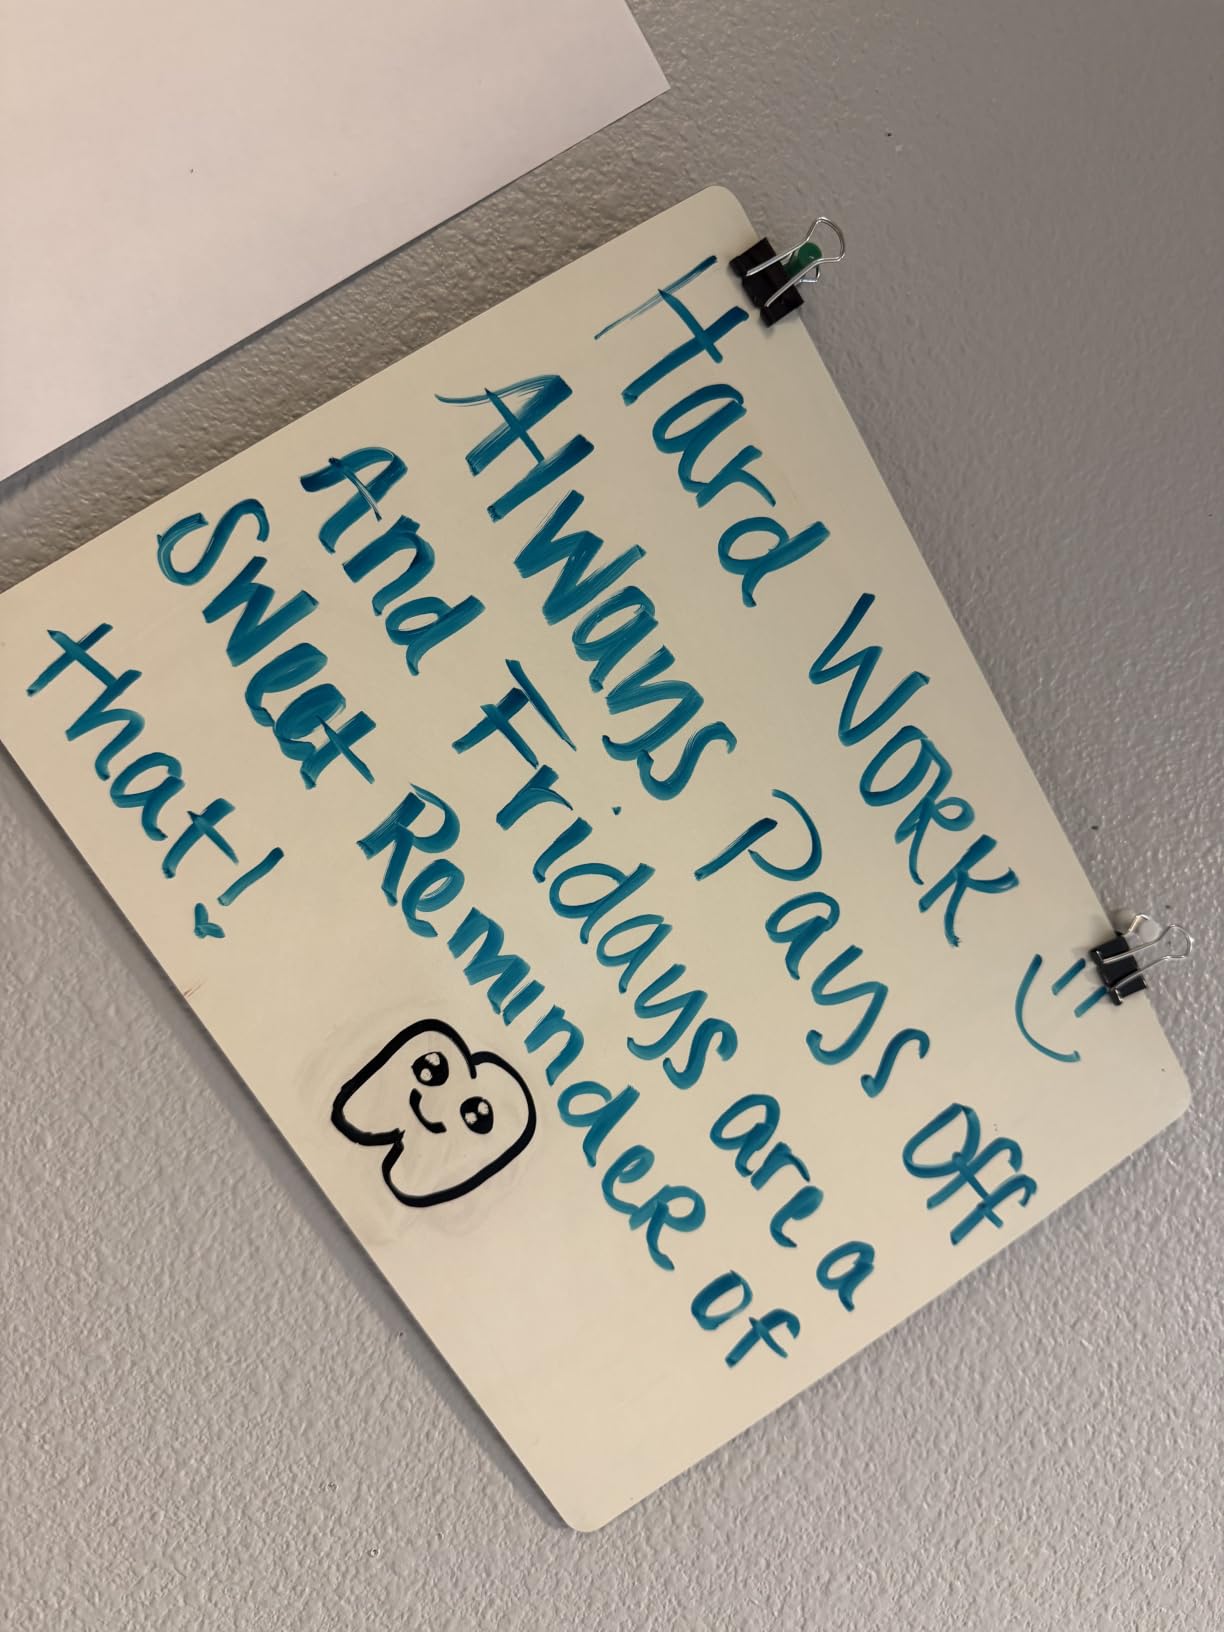 Hard Work
Always Pays Off
And Fridays are a
Sweet Reminder of
that!